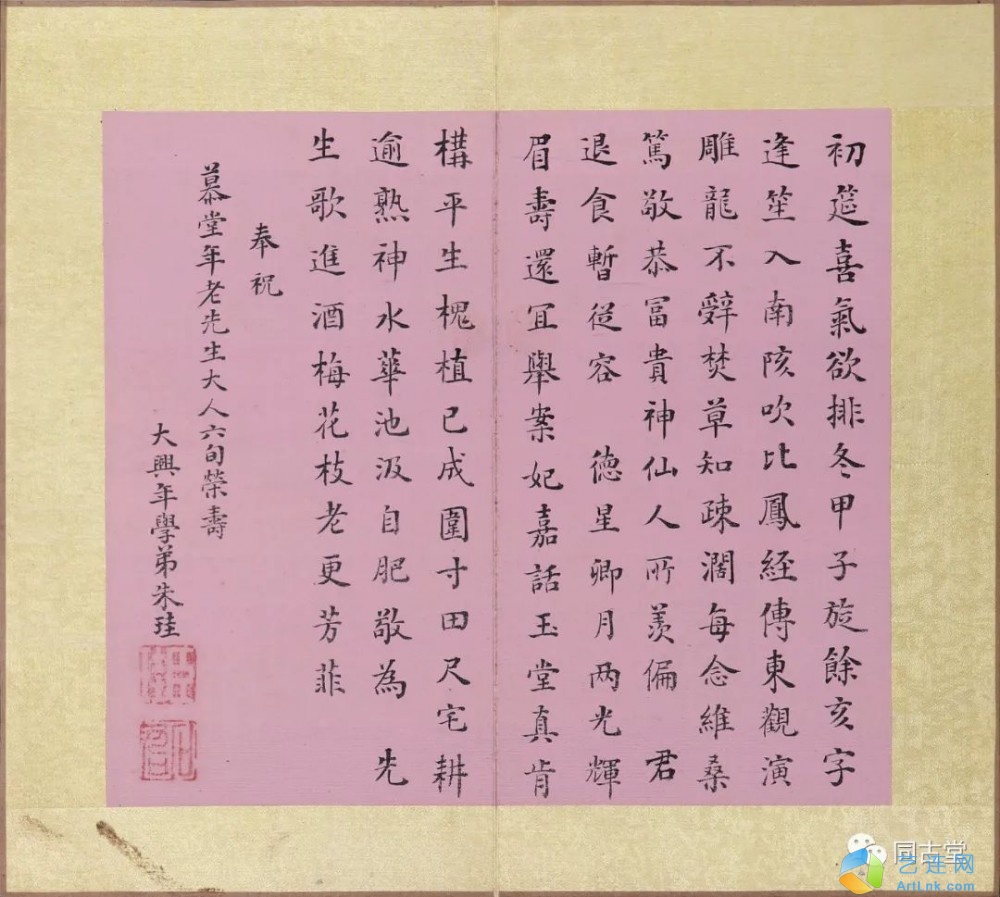 初筵喜氣欲排冬甲子旋餘亥字
逢笙入南陔吹比鳳經傳東觀演
雕龍不辭焚草知疎濶每念維桑
篤敬恭冨貴神仙人所羨偏 君
退食暫從容 德星卿月两光輝
眉壽還宜舉案妃嘉話玉堂真肯
構平生槐植已成圍寸田尺宅耕
逾熟神水華池汲自肥敬為 先
生歌進酒梅花枝老更芳菲
奉祝
慕堂年老先生大人六旬榮壽
大興年學弟朱珪
同古堂
艺连网
ArtLnk.com